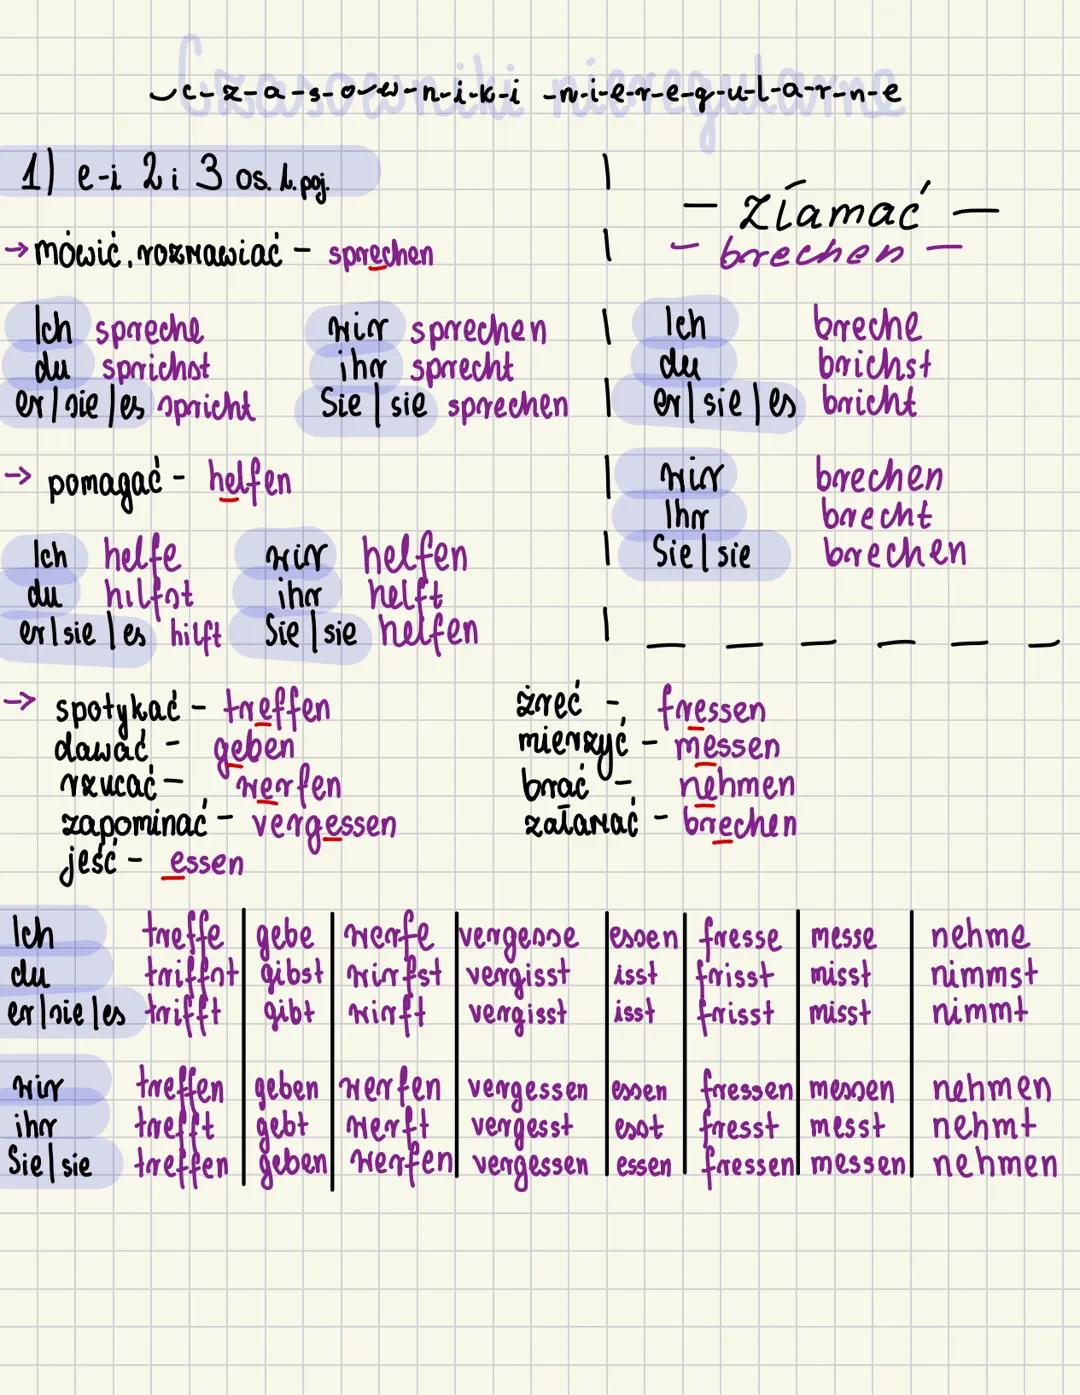 Czasowniki nieregularne
c-z-a-s-o-w-n-i-k-i -n-i-e-r-e-g-u-l-a-r-n-e
1) e-i 2 i 3 os. l. poj.
→ mówić, rozmawiać - sprechen
Ich spreche wir sprechen
du sprichst ihr sprecht
er/sie/es spricht Sie/sie sprechen
→ pomagać - helfen
Ich helfe wir helfen
du hilfst ihr helft
er/sie/es hilft Sie/sie helfen
- złamać -
- brechen -
Ich breche
du brichst
er/sie/es bricht
wir brechen
Ihr brecht
Sie/sie brechen
→ spotykać - treffen
dawać - geben
rzucać - werfen
zapominać - vergessen
jeść - essen
żreć - fressen
mierzyć - messen
brać - nehmen
załamać - brechen
Ich treffe gebe werfe vergesse essen fresse messe nehme
du triffst gibst wirfst vergisst isst frisst misst nimmst
er/sie/es trifft gibt wirft vergisst isst frisst misst nimmt
wir treffen geben werfen vergessen essen fressen messen nehmen
ihr trefft gebt werft vergesst esst fresst messt nehmt
Sie/sie treffen geben werfen vergessen essen fressen messen nehmen